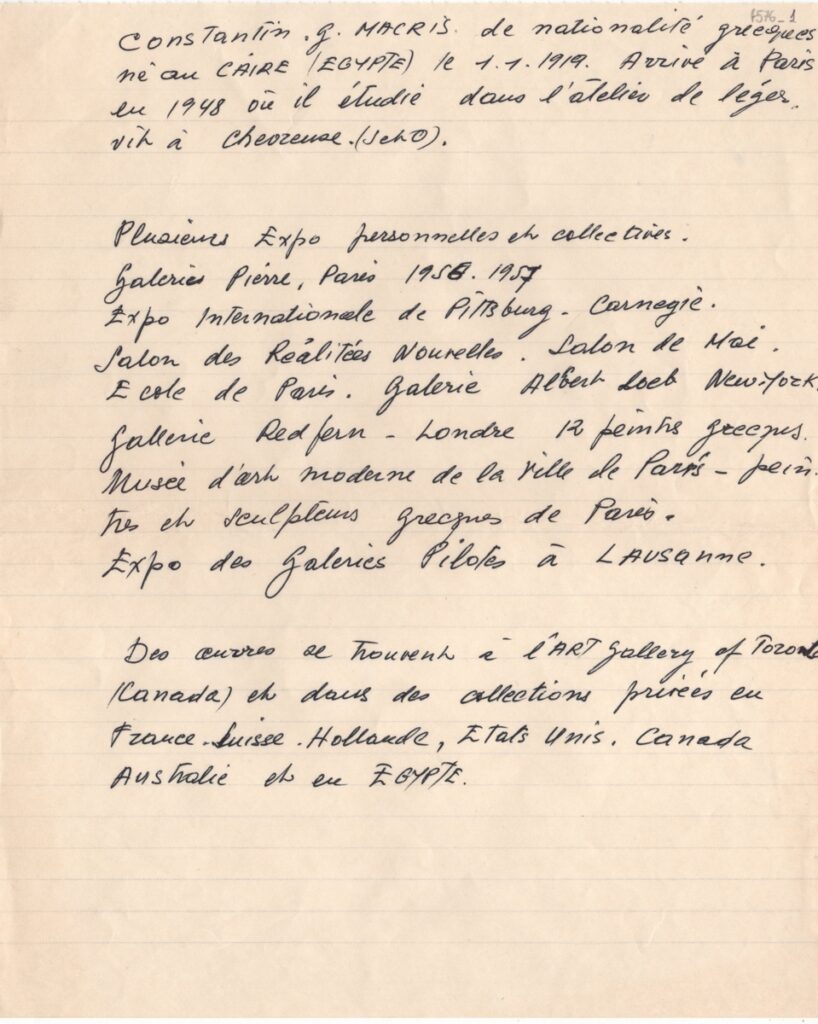 1576_1
Constantin. G. MACRIS. de nationalité grecques
né au CAIRE (EGYPTE) le 1.1.1919. Arrivé à Paris
en 1948 où il étudie dans l'atelier de léger.
vit à Chevreuse. (SetO).
Plusieurs Expo personnelles et collectives.
Galeries Pierre, Paris 1956. 1957
Expo Internationale de Pittsburg - Carnegie.
Salon des Réalitées Nouvelles. Salon de Mai.
Ecole de Paris. Galerie Albert Loeb New-York.
Gallerie Redfern - Londre 12 peintres grecques.
Musée d'art moderne de la Ville de Paris - pein-
tres et sculpteurs grecques de Paris.
Expo des Galeries Pilotes à LAUSANNE.
Des œuvres se trouvent à l'ART Gallery of Toronto
(Canada) et dans des collections privées en
France. Suisse. Hollande, Etats Unis. Canada
Australie et en EGYPTE.